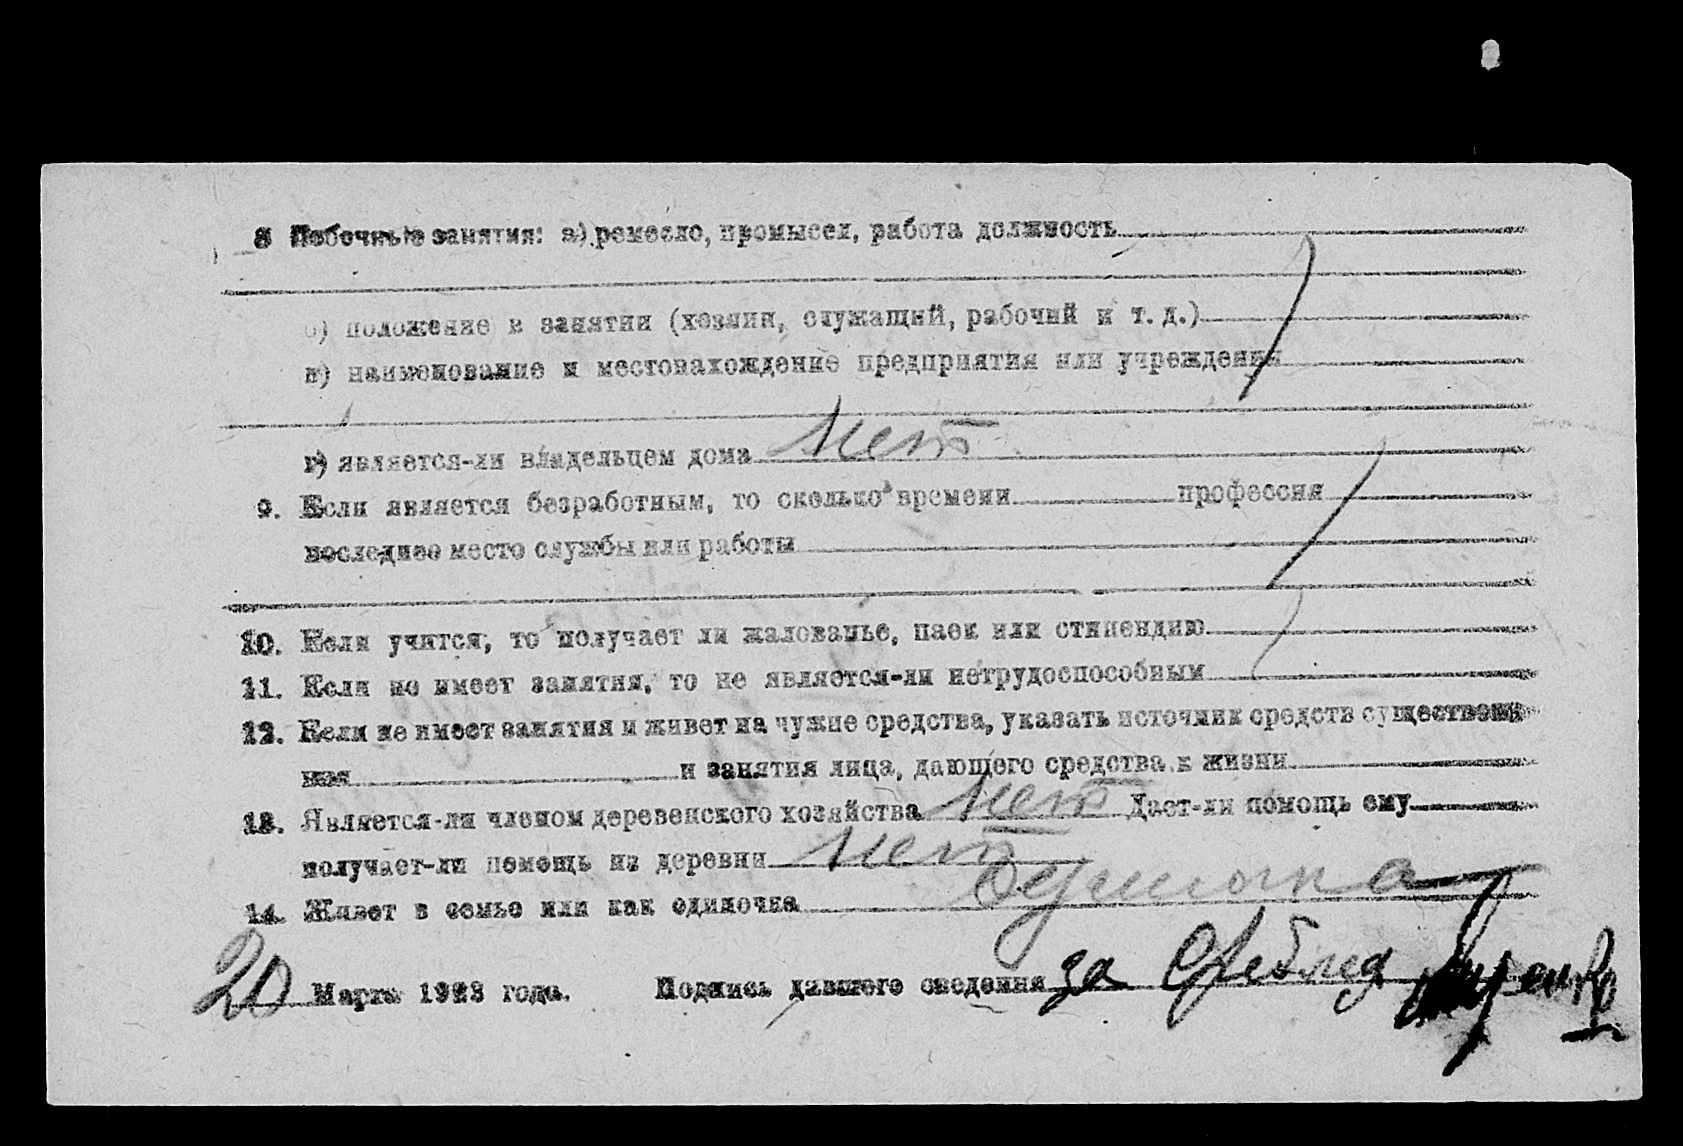 8 Побочные занятия: а) ремесло, промысел, работа должность
б) положение в занятии (хозяин, служащий, рабочий и т. д.)
в) наименование и местонахождение предприятия или учреждения
г) является-ли владельцем дома Нет
9. Если является безработным, то сколько времени профессия
последнее место службы или работы
10. Если учится, то получает ли жалованье, паек или стипендию
11. Если не имеет занятия, то не является-ли нетрудоспособным
12. Если не имеет занятия и живет на чужие средства, указать источник средств существова
ния и занятия лица, дающего средства к жизни
13. Является-ли членом деревенского хозяйства Нет Дает-ли помощь ему
получает-ли помощь из деревни Нет
14. Живет в семье или как одиночка
20 Марта 1923 года. Подпись давшего сведения за